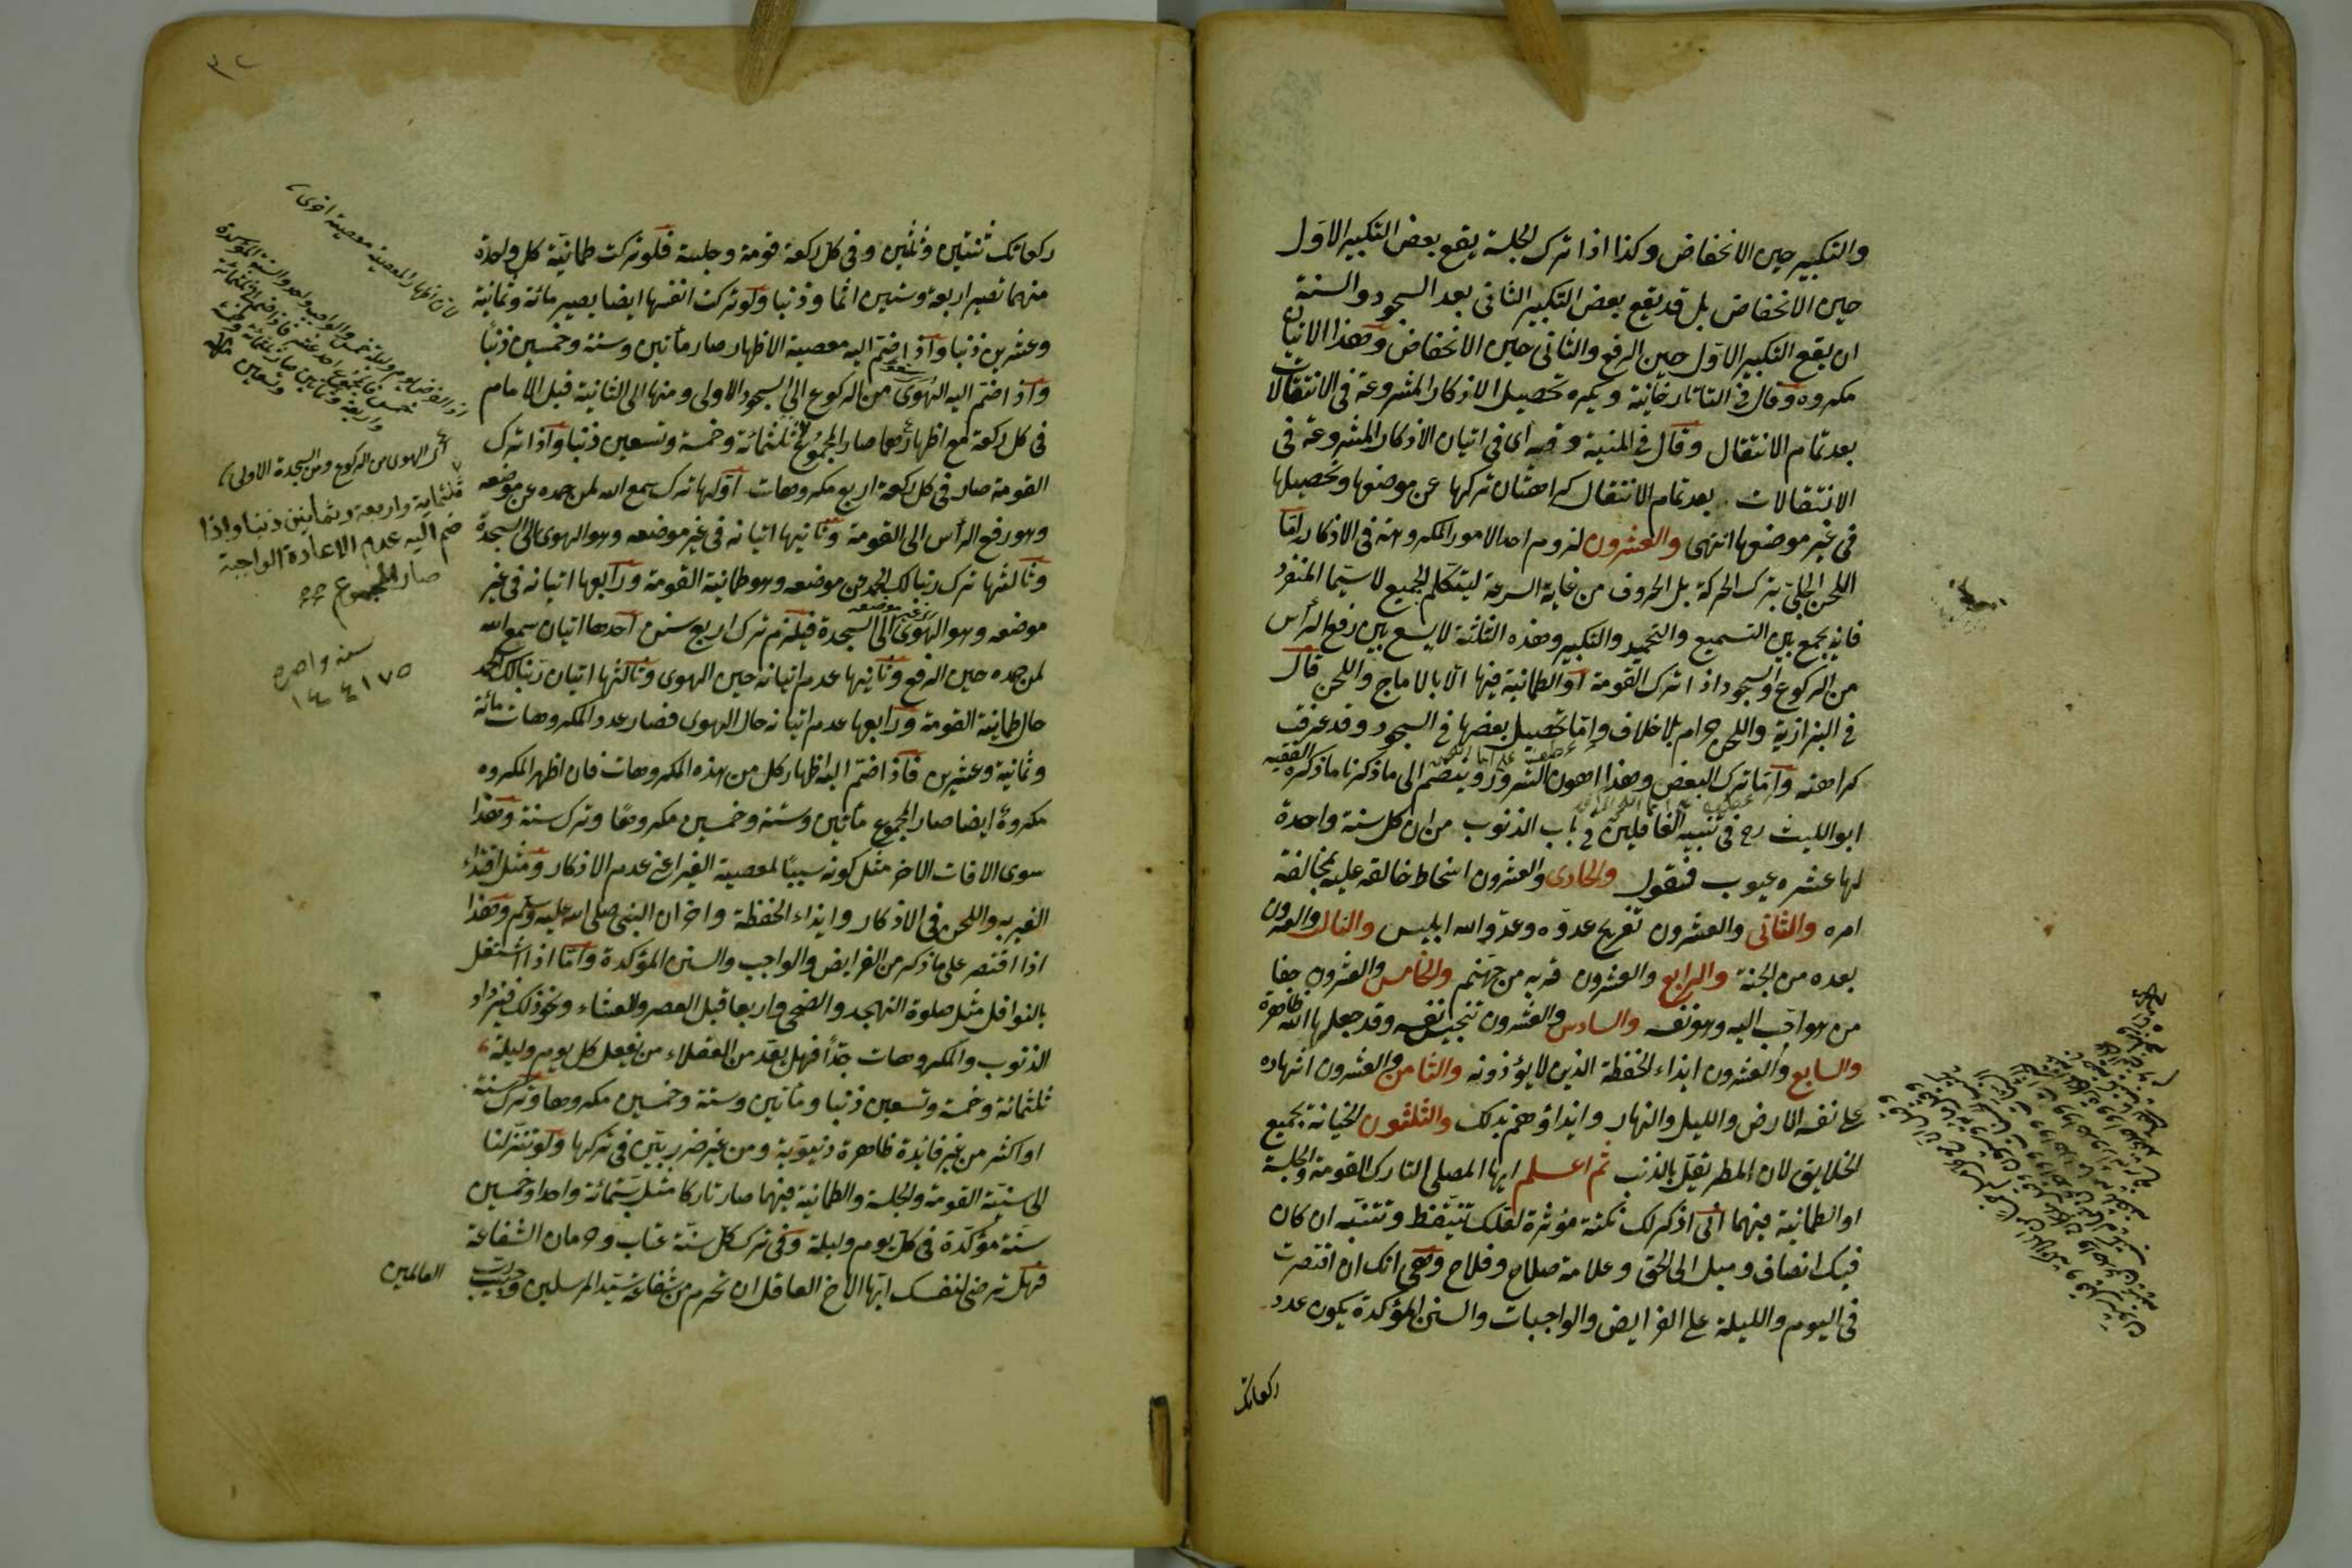 والتكبير حين الانخفاض وكذا اذا ترك الجلسة يقع بعض التكبير الاول
حين الانخفاض بل قد يقع بعض التكبير الثانى بعد السجود والسنة
ان يقع التكبير الاول حين الرفع والثانى حين الانخفاض وهذا الاتيان
مكروه وقال فى التاتارخانية ويكره تحصيل الاذكار المشروعة فى الانتقالات
بعد تمام الانتقال وقال فى المنية وفيه اى فى اتيان الاذكار المشروعة فى
الانتقالات بعد تمام الانتقال كراهتان تركها عن موضعها وتحصيلها
فى غير موضعها انتهى والعشرون لزوم احد الامور المكروهة فى الاذكار اما
اللحن الجلى بترك الحركة بل الحروف من غاية السرعة ليتكلم الجميع لا سيما المنفرد
فانه يجمع بين التسميع والتحميد والتكبير وهذه الثلثة لا يسع بين رفع الرأس
من الركوع والسجود اذا ترك القومة او الطمانية فيها الا بالادماج واللحن قال
فى البزازية واللحن حرام بلا خلاف واما تحصيل بعضها فى السجود وقد عرفت
كراهته واما ترك البعض وهذا اهون الشرور وينضم الى ما ذكرنا ما ذكره الفقيه
ابو الليث رح فى تنبيه الغافلين فى باب الذنوب من ان كل سنة واحدة
لها عشره عيوب فنقول والحادى والعشرون اسخاط خالقه عليه بمخالفة
امره والثانى والعشرون تفريح عدوه وعدو الله ابليس والثالث والعشرون
بعده من الجنة والرابع والعشرون قربه من جهنم والخامس والعشرون جفا
من هو احب اليه وهو نفسه والسادس والعشرون تنجيس نفسه وقد جعلها الله طاهرة
والسابع والعشرون ايذاء الحفظة الذين لا يؤذونه والثامن والعشرون اشهاده
على نفسه الارض والليل والنهار وايذاؤهم بذلك والثلثون الخيانة بجميع
الخلايق لان المطر يقل بالذنب ثم اعلم ايها المصلى التارك القومة والجلسة
او الطمانية فيهما انى اذكر لك نكتة مؤثرة لعلك تتيقظ وتتنبه ان كان
فيك انصاف وميل الى الحق وعلامة صلاح وفلاح وهى انك ان اقتصرت
فى اليوم والليلة على الفرايض والواجبات والسنن المؤكدة يكون عدد
ركعاتك
٣٢
ركعاتك ثنتين وثلثين وفى كل ركعة قومة وجلسة فلو تركت طمانية كل واحدة
منهما تصير اربعة وستين اثما وذنبا ولو تركت انفسها ايضا يصير مائة وثمانية
وعشرين ذنبا واذا ضم اليه معصية الاظهار صار مأتين وستة وخمسين ذنبا
واذا ضم اليه الهوى من الركوع الى السجود الاولى ومنها الى الثانية قبل الامام
فى كل ركعة مع اظهارهما صار المجموع ثلثمائة وخمسة وتسعين ذنبا واذا ترك
القومة صار فى كل ركعة اربع مكروهات اولها ترك سمع الله لمن حمده عن موضعه
وهو رفع الرأس الى القومة وثانيها اتيانه فى غير موضعه وهو الهوى الى السجدة
وثالثها ترك ربنا لك الحمد عن موضعه وهو طمانية القومة ورابعها اتيانه فى غير
موضعه وهو الهوى الى السجدة فيلزم ترك اربع سنن احدها اتيان سمع الله
لمن حمده حين الرفع وثانيها عدم اتيانه حين الهوى وثالثها اتيان ربنا لك الحمد
حال طمانية القومة ورابعها عدم اتيانه حال الهوى فصار عدد المكروهات مائة
وثمانية وعشرين فاذا ضم اليه اظهار كل من هذه المكروهات فان اظهر المكروه
مكروه ايضا صار المجموع مأتين وستة وخمسين مكروها وترك سنة وهذا
سوى الافات الاخر مثل كونه سببا لمعصية الغير اعنى عدم الاذكار ومثل اقتداء
الغير به واللحن فى الاذكار وايذاء الحفظة واحزان النبى صلى الله عليه وسلم وهذا
اذا اقتصر على ما ذكر من الفرايض والواجب والسنن المؤكدة واما اذا اشتغل
بالنوافل مثل صلوة التهجد والضحى واربعا قبل العصر والعشاء ونحو ذلك فيزداد
الذنوب والمكروهات جدا فهل يعد من العقلاء من يفعل كل يوم وليلة
ثلثمائة وخمسة وتسعين ذنبا ومأتين وستة وخمسين مكروها وترك سنة
او اكثر من غير فائدة ظاهرة دنيوية ومن غير ضرر بين فى تركها ولو تنزلنا
الى سنية القومة والجلسة والطمانية فيهما صار تاركا مثل ستمائة واحد وخمسين
سنة مؤكدة فى كل يوم وليلة وفى ترك كل سنة عتاب وحرمان الشفاعة
فهل ترضى لنفسك ايها الاخ العاقل ان تحرم من شفاعة سيد المرسلين وحبيب رب العالمين
لان اظهار المعصية معصية اخرى
اى الهوى من الركوع ومن السجدة الاولى
ثلثماية واربعة وثمانين ذنبا واذا
ضم اليه عدم الاعادة الواجبة
صار المجموع
سنه واحده
١٤٤١٧٥